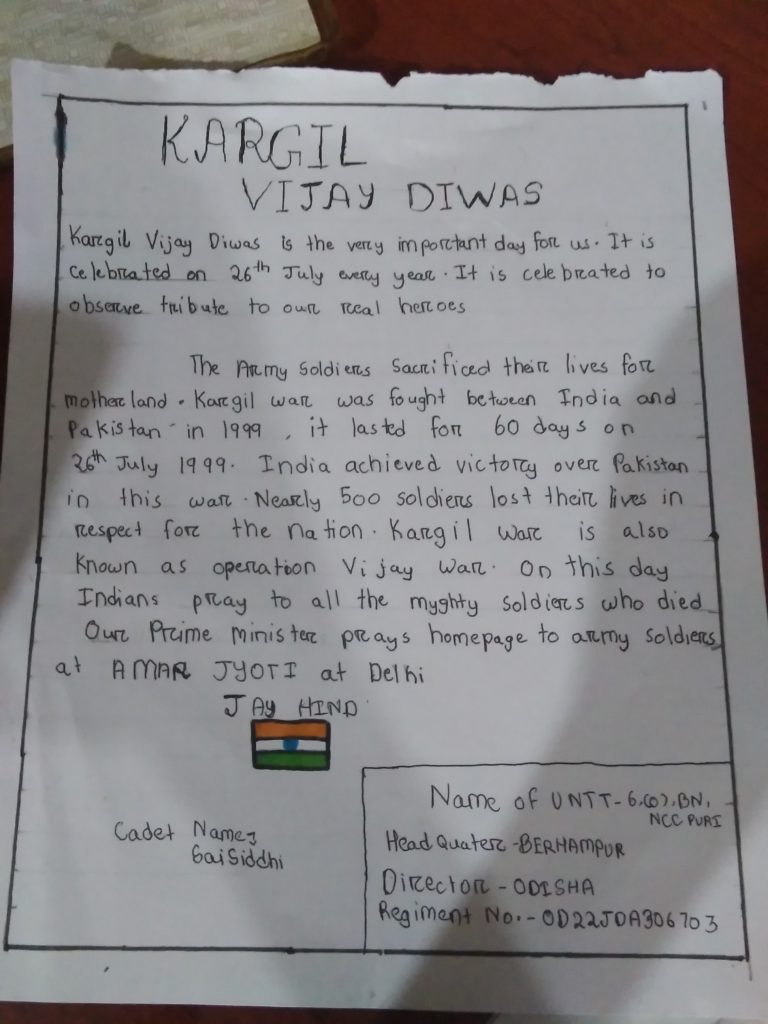 KARGIL
VIJAY DIWAS
Kargil Vijay Diwas is the very important day for us. It is
celebrated on 26th July every year. It is celebrated to
observe tribute to our real heroes
The Army Soldiers sacrificed their lives for
motherland. Kargil war was fought between India and
Pakistan in 1999, it lasted for 60 days on
26th July 1999. India achieved victory over Pakistan
in this war. Nearly 500 soldiers lost their lives in
respect for the nation. Kargil war is also
known as operation Vijay war. On this day
Indians pray to all the myghty soldiers who died
Our Prime minister prays homepage to army soldiers
at AMAR JYOTI at Delhi
JAY HIND
Name of UNTT-6,(O),BN,
NCC PURI
Cadet Name:
SaiSiddhi
Head Quater-BERHAMPUR
Director-ODISHA
Regiment No.-OD22JDA306703